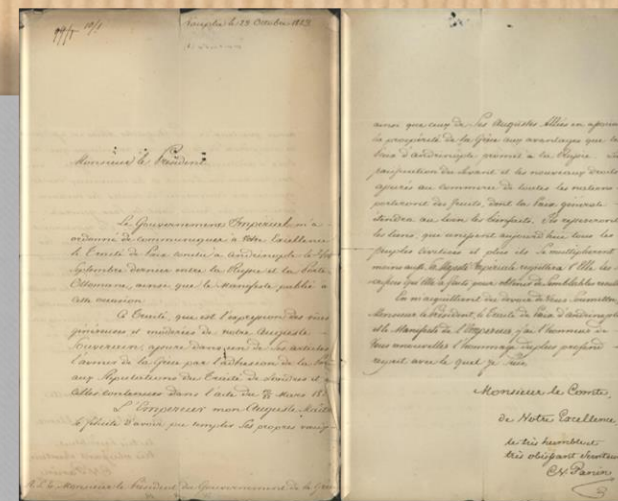 Nauplie le 28 Octobre 1829
Monsieur le Président
Le Gouvernement Impérial m'a
ordonné de communiquer à Votre Excellence
le Traité de Paix conclu à Andrinople le
Septembre dernier entre la Russie et la Porte
Ottomane, ainsi que le Manifeste publié à
cette occasion
Ce Traité, qui est l'expression des vues
généreuses et modérées de notre Auguste
Souverain, assure dans un de ses articles
l'avenir de la Grèce par l'adhésion de la Porte
aux stipulations du Traité de Londres et à
celles contenues dans l'acte du Mars 18
L'Empereur mon Auguste Maître
se félicite d'avoir pu remplir Ses propres vœux
A S. E. Monsieur le Président du Gouvernement de la Grèce
ainsi que ceux de Ses Augustes Alliés en
la prospérité de la Grèce aux avantages que la
Paix d'Andrinople promet à la Russie. La
pacification du Levant et les nouveaux droits
acquis au commerce de toutes les nations
porteront des fruits, dont la Paix générale
étendra au loin les bienfaits. Ils
les liens, qui unissent aujourd'hui tous les
peuples et plus ils se multiplieront
moins Sa Majesté Impériale regrettera l'Elle les
qu'Elle a faits pour obtenir de semblables
En m'acquittant du devoir de Vous soumettre,
Monsieur le Président, le Traité de Paix d'Andrinople
et le Manifeste de l'Empereur, j'ai l'honneur de
Vous renouveller l'hommage du plus profond
respect avec le quel je suis,
Monsieur le Comte,
de Votre Excellence,
le très humble et
très obéissant Serviteur
C. Panin